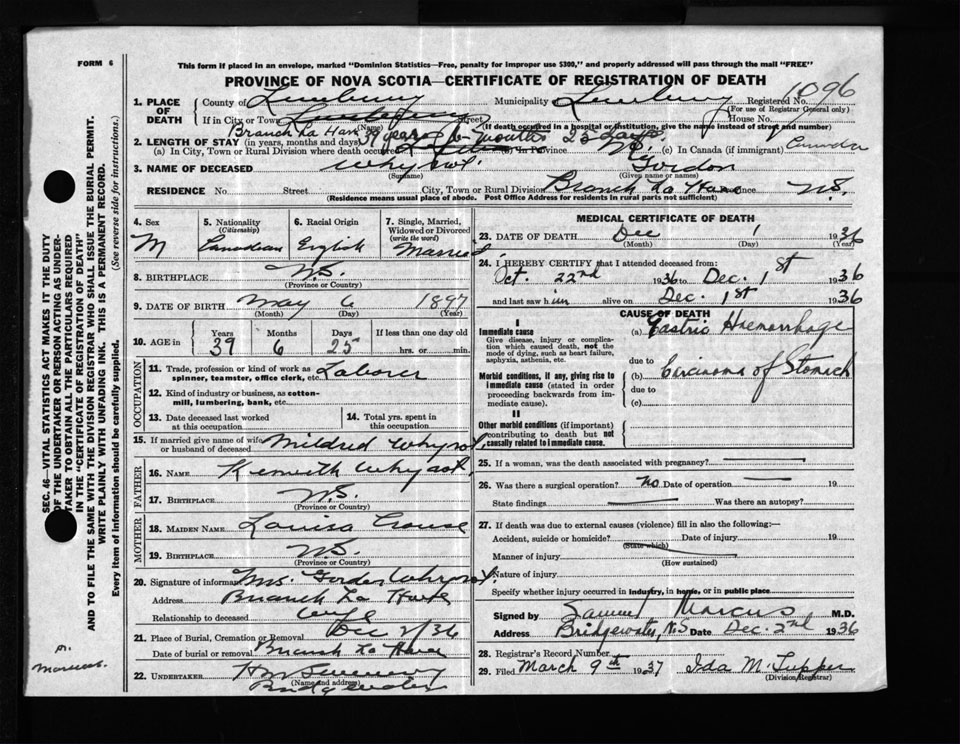 FORM 6
This form if placed in an envelope, marked "Dominion Statistics—Free, penalty for improper use $300," and properly addressed will pass through the mail "FREE"
PROVINCE OF NOVA SCOTIA—CERTIFICATE OF REGISTRATION OF DEATH
1. PLACE OF DEATH
County of Lunenburg Municipality Lunenburg Registered No. 1096
(For use of Registrar General only)
If in City or Town Street House No.
(Name) (If death occurred in a hospital or institution, give the name instead of street and number)
Branch La Have 39 years 6 months 25 days
2. LENGTH OF STAY (in years, months and days)
(a) In City, Town or Rural Division where death occurred (b) In Province (c) In Canada (if immigrant) Canada
3. NAME OF DECEASED Whynot Gordon
(Surname) (Given name or names)
RESIDENCE No. Street City, Town or Rural Division Branch La Have Province N.S.
(Residence means usual place of abode. Post Office Address for residents in rural parts not sufficient)
4. Sex M
5. Nationality (Citizenship) Canadian
6. Racial Origin English
7. Single, Married, Widowed or Divorced (write the word) Married
8. BIRTHPLACE N.S.
(Province or Country)
9. DATE OF BIRTH May 6 1897
(Month) (Day) (Year)
10. AGE in Years Months Days If less than one day old
39 6 25 hrs. or min.
OCCUPATION
11. Trade, profession or kind of work as spinner, teamster, office clerk, etc. Laborer
12. Kind of industry or business, as cotton-mill, lumbering, bank, etc.
13. Date deceased last worked at this occupation
14. Total yrs. spent in this occupation
15. If married give name of wife or husband of deceased Mildred Whynot
FATHER
16. NAME Kenneth Whynot
17. BIRTHPLACE N.S.
(Province or Country)
MOTHER
18. MAIDEN NAME Louisa Crouse
19. BIRTHPLACE N.S.
(Province or Country)
20. Signature of informant Mrs. Gordon Whynot
Address Branch La Have
Relationship to deceased wife
21. Place of Burial, Cremation or Removal Dec 2/36
Date of burial or removal Branch La Have
22. UNDERTAKER
(Name and address)
Bridgewater
MEDICAL CERTIFICATE OF DEATH
23. DATE OF DEATH Dec 1 1936
(Month) (Day) (Year)
24. I HEREBY CERTIFY that I attended deceased from:
Oct. 22nd 1936 to Dec. 1st 1936
and last saw him alive on Dec. 1st 1936
CAUSE OF DEATH
I
Immediate cause
Give disease, injury or complication which caused death, not the mode of dying, such as heart failure, asphyxia, asthenia, etc.
(a) Gastric Haemorrhage
due to
Morbid conditions, if any, giving rise to immediate cause (stated in order proceeding backwards from immediate cause).
(b) Carcinoma of Stomach
due to
(c)
II
Other morbid conditions (if important) contributing to death but not causally related to immediate cause.
25. If a woman, was the death associated with pregnancy?
26. Was there a surgical operation? No Date of operation 19
State findings Was there an autopsy?
27. If death was due to external causes (violence) fill in also the following:—
Accident, suicide or homicide? Date of injury 19
(State which)
Manner of injury
(How sustained)
Nature of injury
Specify whether injury occurred in industry, in home, or in public place
Signed by Marcus M.D.
Address Bridgewater, N.S Date Dec. 2nd 1936
28. Registrar's Record Number
29. Filed March 9th 1937 Ida M. Tupper
(Division Registrar)
SEC. 46—VITAL STATISTICS ACT MAKES IT THE DUTY
OF THE UNDERTAKER OR PERSON ACTING AS UNDER-
TAKER TO OBTAIN ALL THE PARTICULARS REQUIRED
IN THE "CERTIFICATE OF REGISTRATION OF DEATH"
AND TO FILE THE SAME WITH THE DIVISION REGISTRAR WHO SHALL ISSUE THE BURIAL PERMIT.
WRITE PLAINLY WITH UNFADING INK. THIS IS A PERMANENT RECORD.
Every item of information should be carefully supplied. (See reverse side for instructions.)
Marcus.